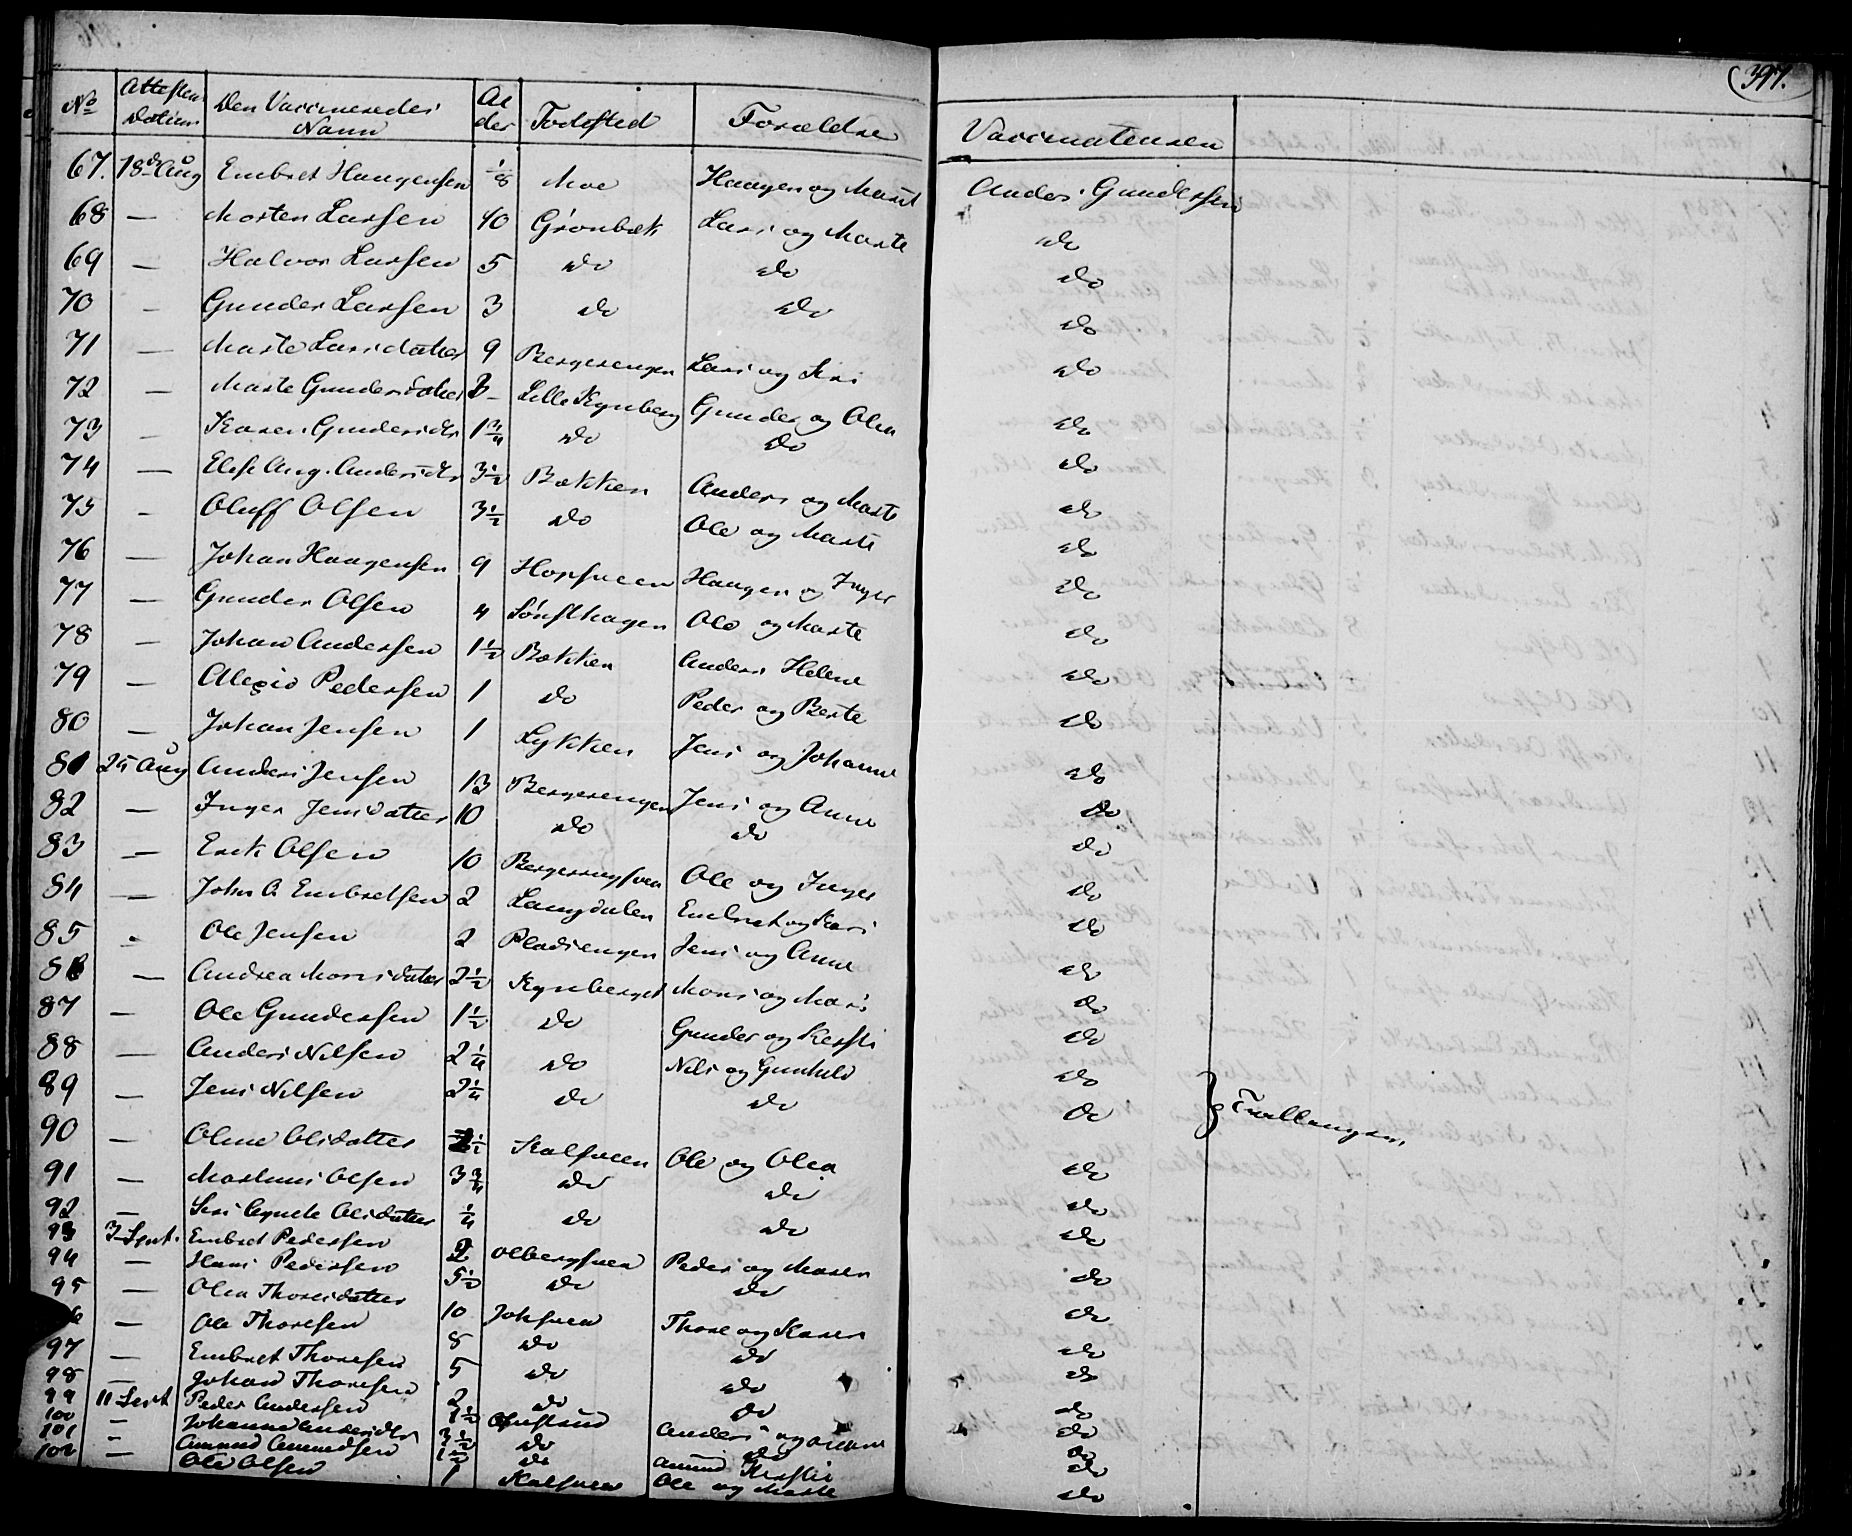 397.
No | Attestens Datum | Den Vaccineredes Navn | Alder | Fødested | Forældre | Vaccinateuren
67. | 18de Aug | Embret Haagensen | 1/8 | Moe | Haagen og Marit | Anders Gundersen
68 | — | Morten Larsen | 10 | Grønbæk | Lars og Marte | Do
69 | — | Halvor Larsen | 5 | Do | Do | Do
70 | — | Gunder Larsen | 3 | Do | Do | Do
71 | — | Marte Larsdatter | 9 | Bergerengen | Lars og Siri | Do
72 | — | Marte Gundersdatter | 3 | Lille Kynberg | Gunder og Olea | Do
73 | — | Karen Gundersdtr | 1 3/4 | Do | Do | Do
74 | — | Elise Aug. Andersdtr | 3 1/2 | Bækken | Anders og Marte | Do
75 | — | Oluff Olsen | 3 1/2 | Do | Ole og Marte | Do
76 | — | Johan Haagensen | 9 | Hopsveen | Haagen og Inger | Do
77 | — | Gunder Olsen | 4 | Sønsthagen | Ole og Marte | Do
78 | — | Johan Andersen | 1 1/2 | Bækken | Anders Helene | Do
79 | — | Alexis Pedersen | 1 | Do | Peder og Berte | Do
80 | — | Johan Jensen | 1 | Lykken | Jens og Johanne | Do
81 | 25 Aug | Anders Jensen | 13 | Bergerengen | Jens og Anne | Do
82 | — | Inger Jensdatter | 10 | Do | Do | Do
83 | — | Erik Olsen | 10 | | Ole og Inger | Do
84 | — | John O. Embretsen | 2 | Langdalen | Embret og Kari | Do
85 | — | Ole Jensen | 2 | Pladsengen | Jens og Anne | Do
86 | — | Andrea Monsdatter | 2 1/2 | Kynberget | Mons og Mari | Do
87 | — | Ole Gundersen | 1 1/2 | Do | Gunder og Kersti | Do
88 | — | Anders Nilsen | 2 1/4 | Do | Nils og Gunhild | Do
89 | — | Jens Nilsen | 2 1/4 | Do | Do | Do | } Tvillinger.
90 | — | Oline Olsdatter | | Kalsveen | Ole og Olea | Do
91 | — | Martinus Olsen | 3 3/4 | Do | Do | Do
92 | — | Siri Agnete Olsdatter | 1/4 | Do | Do | Do
93 | 3 Sept. | Embret Pedersen | 2 | Olbergsveen | Peder og Maren | Do
94 | — | Hans Pedersen | 5 1/2 | Do | Do | Do
95 | — | Olea Thoresdatter | 10 | Johsveen | Thore og Karen | Do
6 | — | Ole Thoresen | 8 | Do | Do | Do
97 | — | Embret Thoresen | 5 | Do | Do | Do
98 | — | Johan Thoresen | 2 | Do | Do | Do
99 | 11 Sept | Peder Andersen | 1 1/2 | | Anders og | Do
100 | — | Johanne Andersdtr | 3 1/2 | Do | Do | Do
101 | — | Amund Amundsen | 1 1/2 | Do | Amund Kersti | Do
102 | — | Ole Olsen | 1 | Kalsveen | Ole og Marte | Do